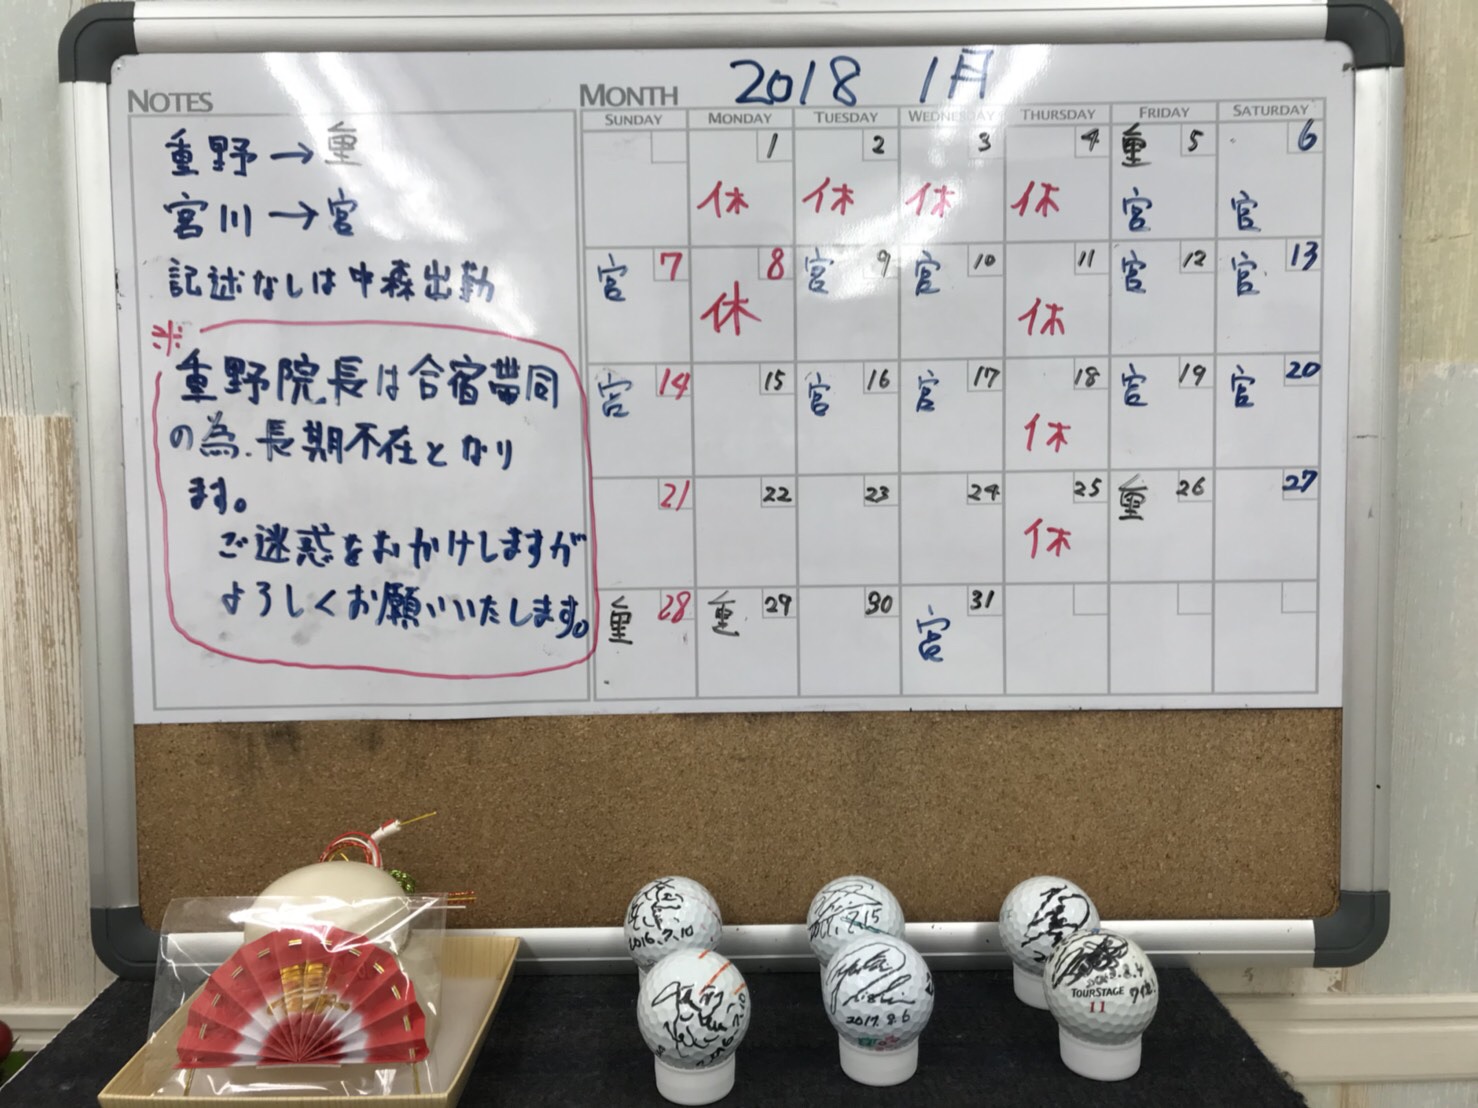 NOTES
重野→重
宮川→宮
記述なしは中森出勤
※
重野院長は合宿帯同
の為、長期不在となり
ます。
ご迷惑をおかけしますが
よろしくお願いいたします。
MONTH 2018 1月
SUNDAY MONDAY TUESDAY WEDNESDAY THURSDAY FRIDAY SATURDAY
1 2 3 4 重 5 6
休 休 休 休 宮 宮
宮 7 8 宮 9 宮 10 11 宮 12 宮 13
休 休
宮 14 15 宮 16 宮 17 18 宮 19 宮 20
休
21 22 23 24 25 重 26 27
休
重 28 重 29 30 31
宮
2016.7.10
2017.8.6
TOURSTAGE
11